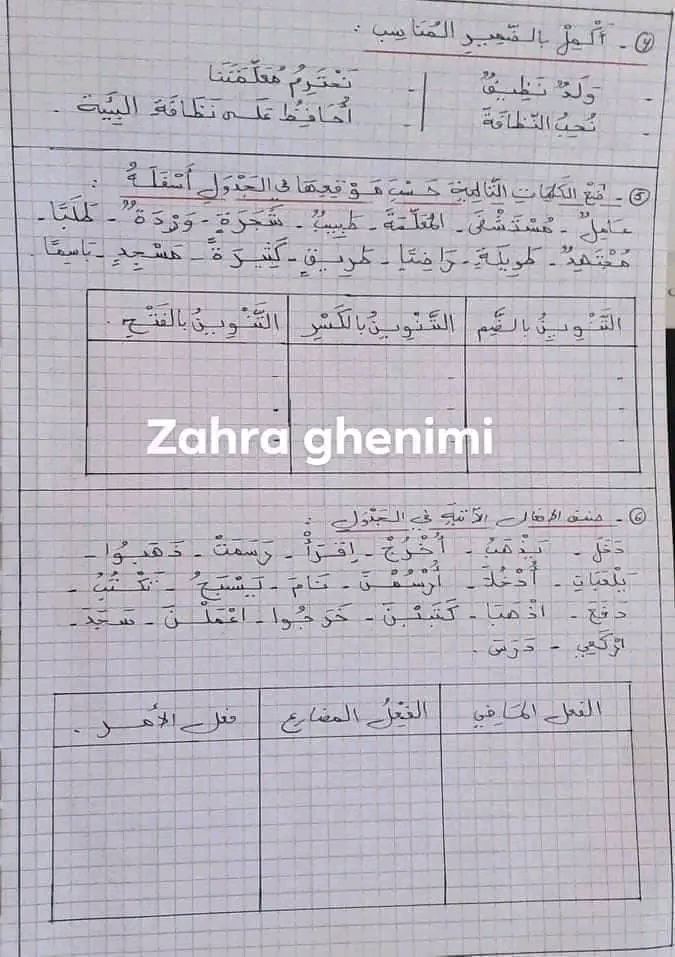 ④ - أكْمِلْ بالضّميرِ المُنَاسِب :
- وَلَدٌ نَظِيفٌ
- نَحْتَرِمُ مُعَلِّمَتَنَا
- نُحِبُّ النَّظافَةَ
- أُحَافِظُ عَلَى نَظَافَةِ البِيئَة .
⑤ - ضَع الكلماتِ التَّاليةِ حَسَبَ مَوْقِعِهَا في الجَدْوَلِ أسْفَلَهُ :
عامِلٌ - مُسْتَشْفًى - المُعَلِّمَةَ - طَبِيبٌ - شَجَرَةٍ - وَرْدَةٌ - طَلَبًا -
مُجْتَهِدٌ - طَوِيلَةٍ - رَاضِيًا - طَرِيقٍ - كَثِيرَةً - مَسْجِدٍ - بَاسِمًا .
التَّنْوِينُ بالضَّم
التَّنْوِينُ بالكَسْرِ
التَّنْوِينُ بالفَتْحِ .
Zahra ghenimi
⑥ - صنف الافعال الآتية في الجَدْوَلِ :
دَخَلَ - يَذْهَبُ - اُخْرُجْ - اِقْرَأْ - رَسَمَتْ - ذَهَبُوا -
يلعبانِ - أُدْخُلْ - اُرْسُمْنَ - نَامَ - يَسْبَحُ - نَكْتُبُ -
دفعَ - اذْهبَا - كَتَبْنَ - خَرجُوا - اعْمَلْنَ - سَجَدَ -
اِرْكَعِي - دَرَسَ .
الفعل المَاضِي
الفِعْلُ المضارع
فعل الأمر .